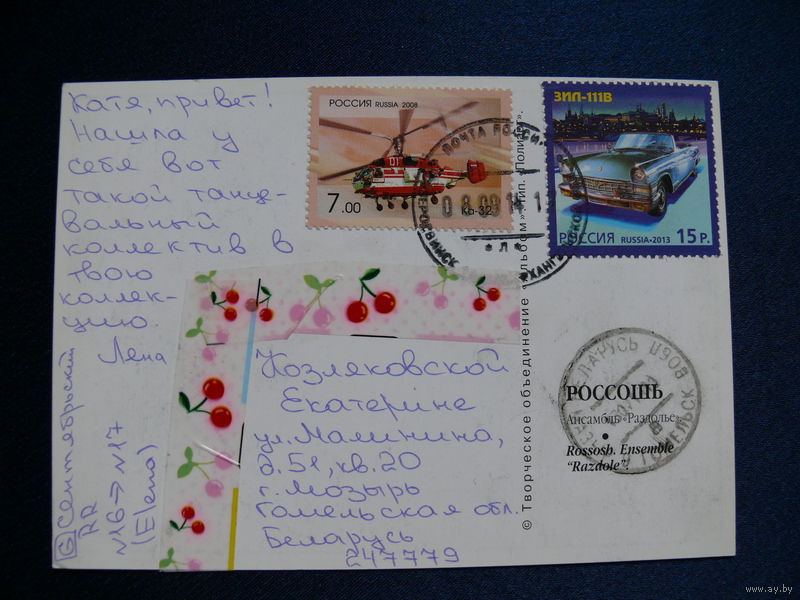 Катя, привет!
Нашла у
себя вот
такой танце-
вальный
коллектив в
твою
коллек-
цию.
Лена
G Сентябрьский
RR
N16→N17
(Elena)
РОССИЯ RUSSIA 2008
7.00
Ка-32
01
ЗИЛ-111В
РОССИЯ RUSSIA-2013 15 Р.
ПОЧТА РОССИИ
08.09.14 1
Козляковской
Екатерине
ул. Малинина,
д. 51, кв. 20
г. Мозырь
Гомельская обл.
Беларусь
247779
© Творческое объединение «Альбом». Тип. «Полиарт».
БЕЛАРУСЬ
РОССОШЬ
Ансамбль «Раздолье».
•
Rossosh. Ensemble
"Razdole".
http://www.ay.by/